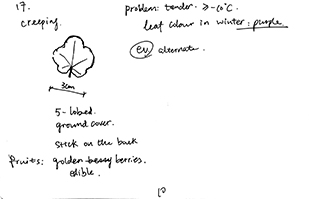 17.
creeping.
problem: tender. > -10°C
leaf colour in winter: purple
ev alternate.
3cm
5-lobed.
ground cover.
stick on the back
fruits: golden berry berries.
edible.